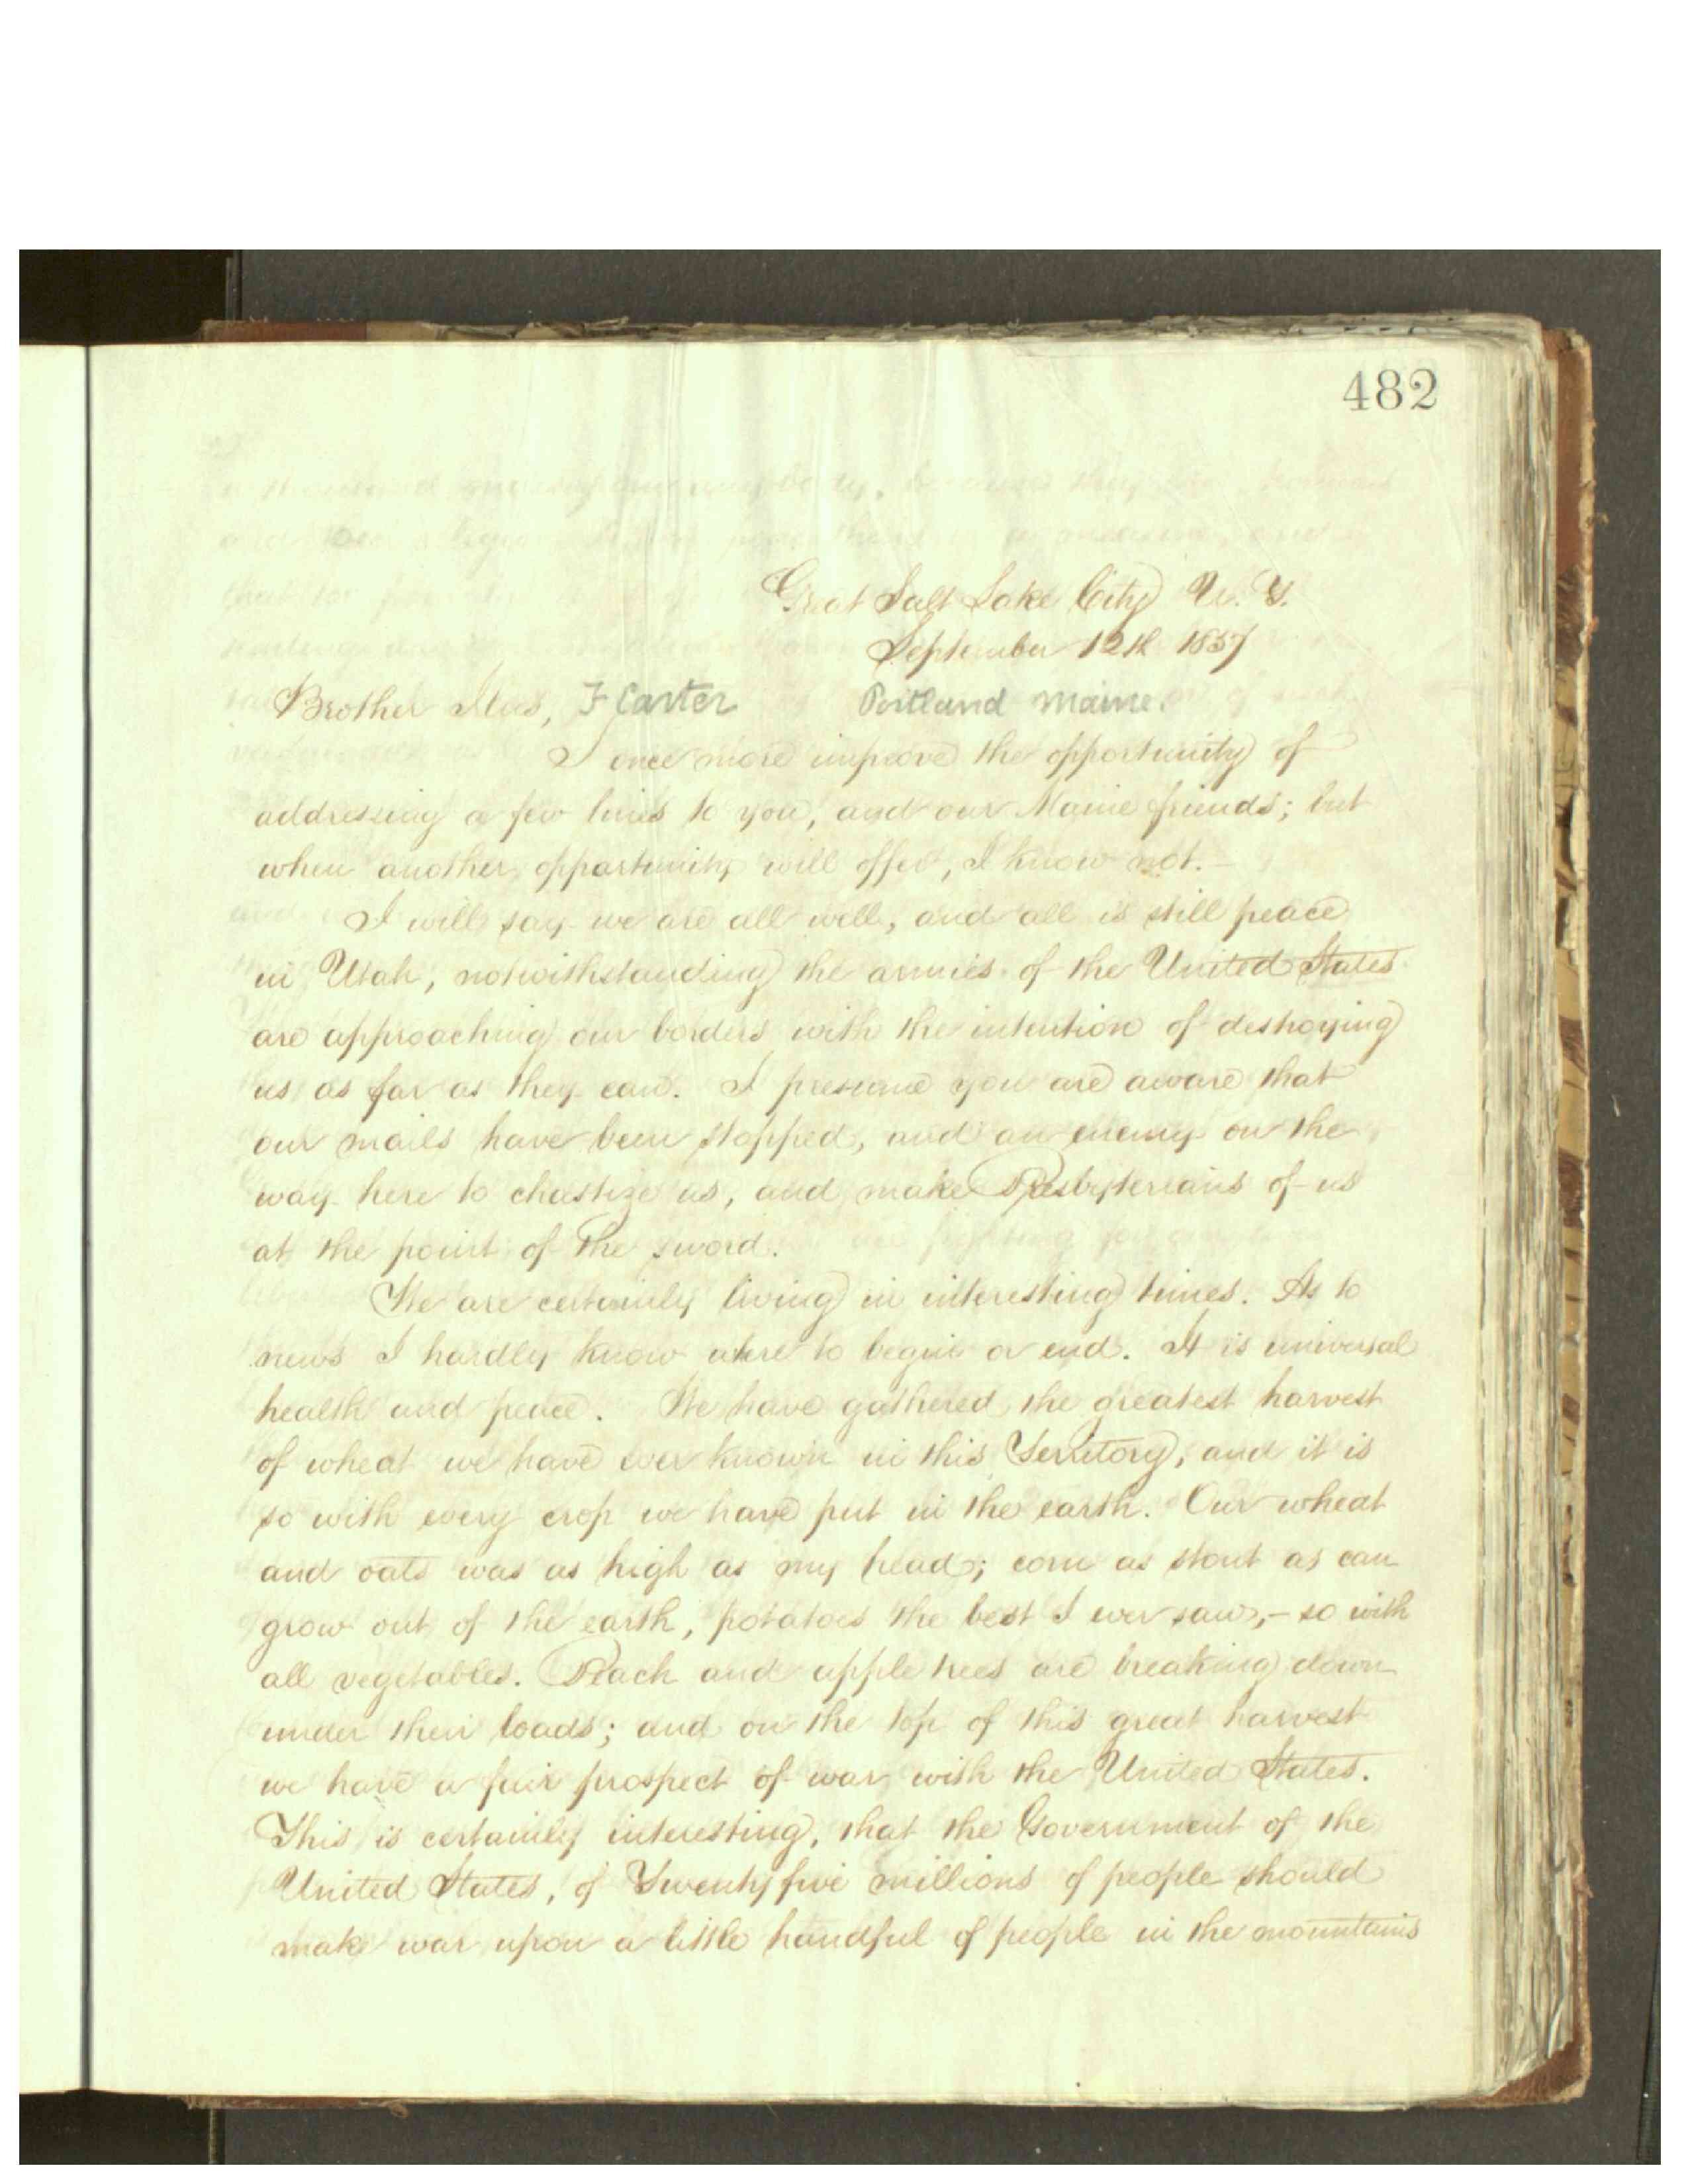 482
Great Salt Lake City U. T.
September 12th 1857
Brother Ilus, F Carter Portland Maine.
I once more improve the opportunity of
addressing a few lines to you, and our Maine friends; but
when another opportunity will offer, I know not.—
I will say we are all well, and all is still peace
in Utah, notwithstanding the armies of the United States
are approaching our borders with the intention of destroying
us as far as they can. I presume you are aware that
our mails have been stopped, and an enemy on the
way here to chastize us, and make Presbyterians of us
at the point of the sword.
We are certainly living in interesting times. As to
news I hardly know where to begin or end. It is universal
health and peace. We have gathered the greatest harvest
of wheat we have ever known in this Territory; and it is
so with every crop we have put in the earth. Our wheat
and oats was as high as my head; corn as stout as can
grow out of the earth, potatoes the best I ever saw,— so with
all vegetables. Peach and apple trees are breaking down
under their loads; and on the top of this great harvest
we have a fair prospect of war with the United States.
This is certainly interesting, that the Government of the
United States, of Twenty five millions of people should
make war upon a little handful of people in the mountains